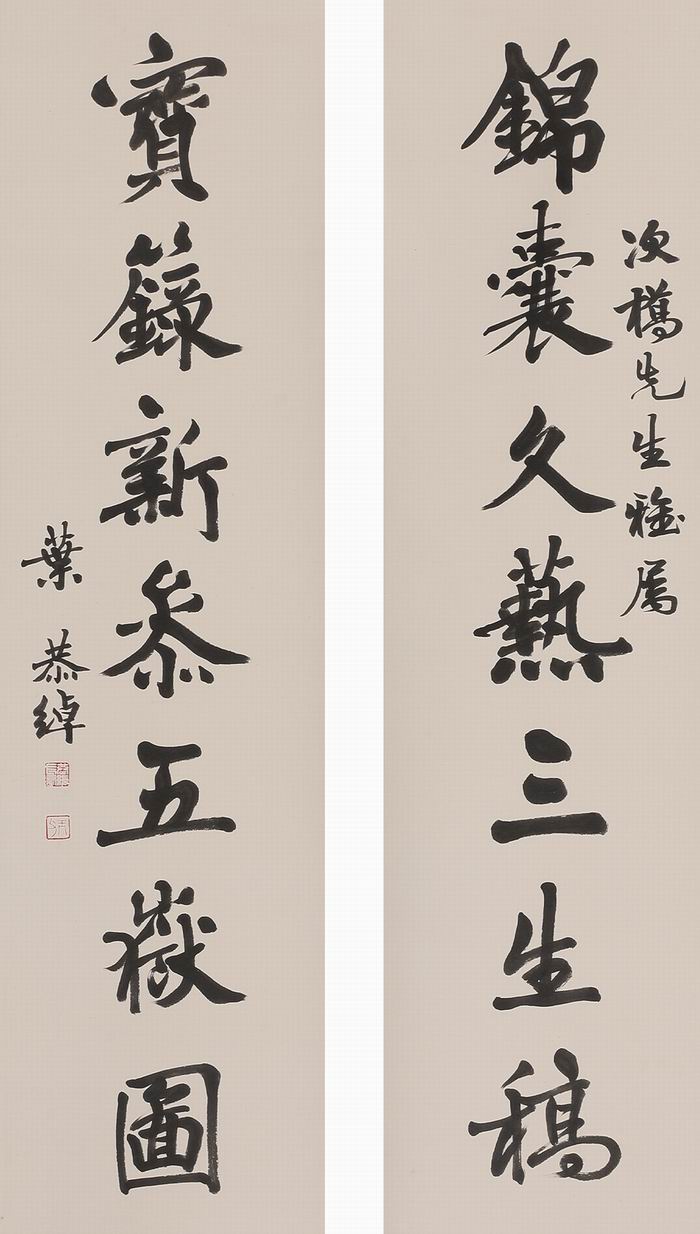 錦囊久爇三生稿
次先生雅屬
寶籙新參五嶽圖
葉恭綽